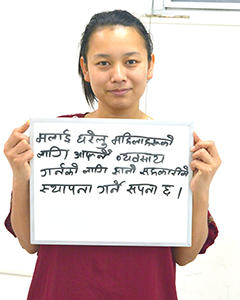 मलाई घरेलु महिलाहरुको
लागि आफ्नै व्यवसाय
गर्नको लागि सानो सहकारीको
स्थापना गर्ने सपना छ ।